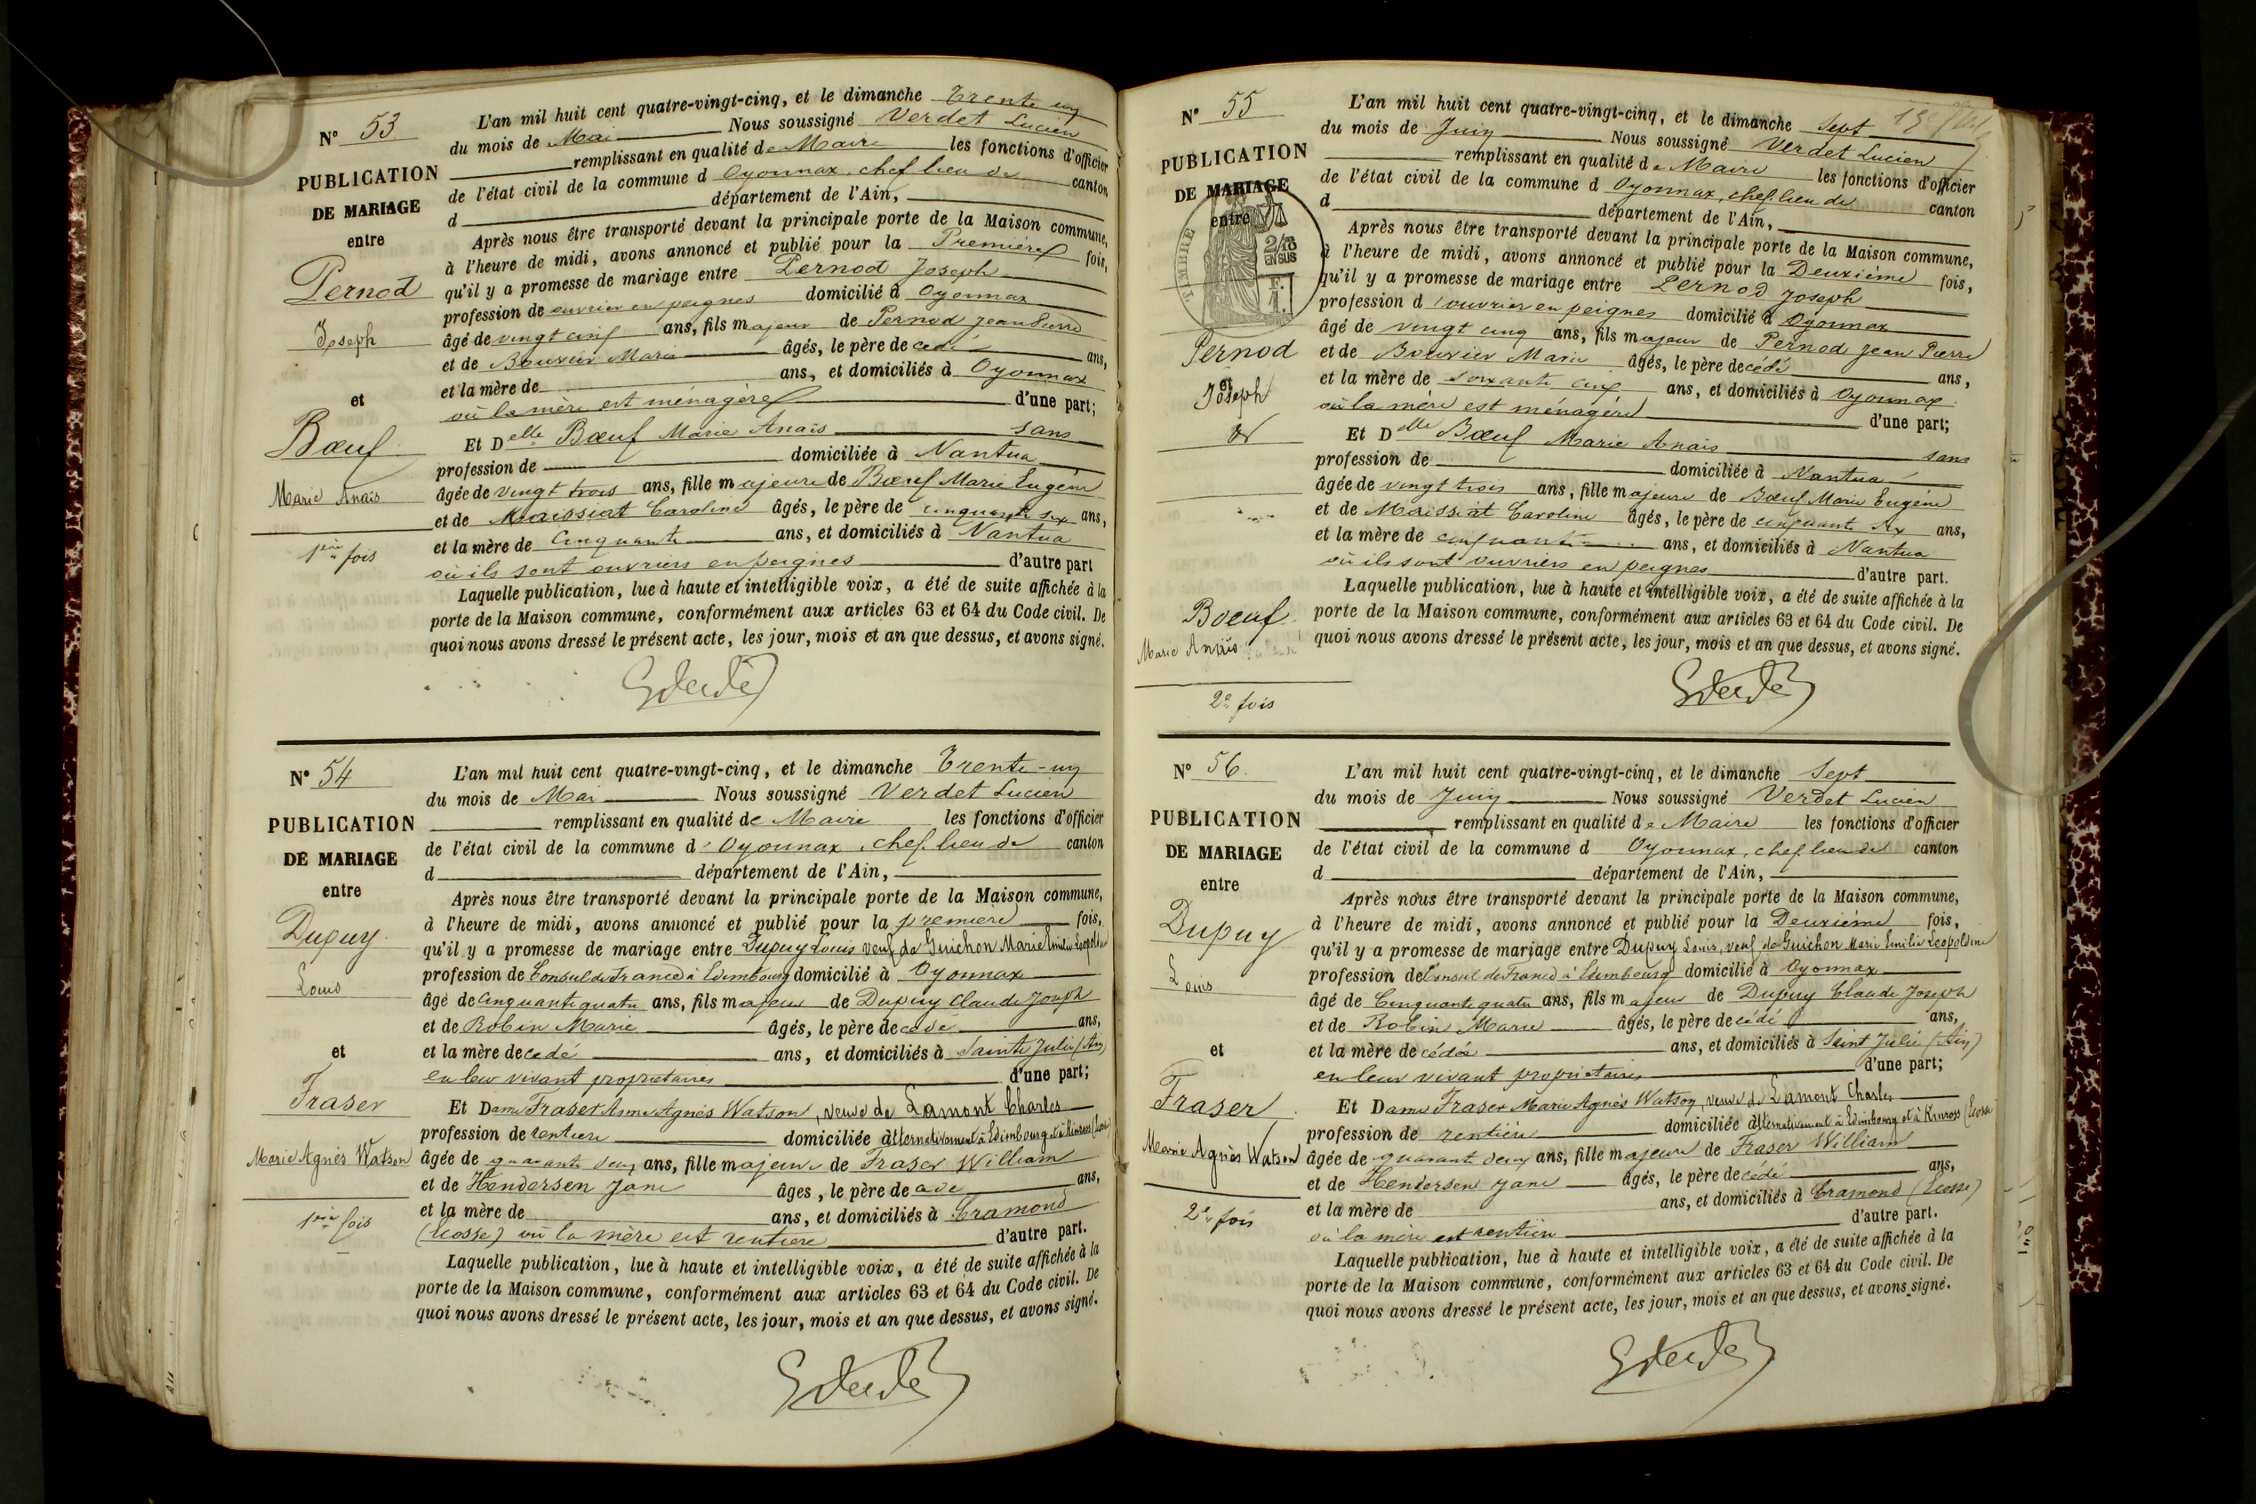 N° 53
PUBLICATION
DE MARIAGE
entre
Pernod
Joseph
et
Bœuf
Marie Anaïs
1ère fois
L'an mil huit cent quatre-vingt-cinq, et le dimanche Trente un
du mois de Mai Nous soussigné Verdet Lucien
remplissant en qualité de Maire les fonctions d'officier
de l'état civil de la commune d Oyonnax, chef lieu de canton
d département de l'Ain,
Après nous être transporté devant la principale porte de la Maison commune,
à l'heure de midi, avons annoncé et publié pour la Première fois,
qu'il y a promesse de mariage entre Pernod Joseph
profession de ouvrier en peignes domicilié à Oyonnax
âgé de vingt cinq ans, fils majeur de Pernod Jean Pierre
et de Bouvier Marie âgés, le père decédé ans,
et la mère de ans, et domiciliés à Oyonnax
où la mère est ménagère d'une part;
Et Delle Bœuf Marie Anaïs sans
profession de domiciliée à Nantua
âgée de vingt trois ans, fille majeure de Bœuf Marie Eugène
et de Maissiat Caroline âgés, le père de cinquante six ans,
et la mère de Cinquante ans, et domiciliés à Nantua
où ils sont ouvriers en peignes d'autre part
Laquelle publication, lue à haute et intelligible voix, a été de suite affichée à la
porte de la Maison commune, conformément aux articles 63 et 64 du Code civil. De
quoi nous avons dressé le présent acte, les jour, mois et an que dessus, et avons signé.
N° 54
PUBLICATION
DE MARIAGE
entre
Dupuy
Louis
et
Fraser
Marie Agnès Watson
1ère fois
L'an mil huit cent quatre-vingt-cinq, et le dimanche Trente-un
du mois de Mai Nous soussigné Verdet Lucien
remplissant en qualité de Maire les fonctions d'officier
de l'état civil de la commune d'Oyonnax, chef lieu de canton
d département de l'Ain,
Après nous être transporté devant la principale porte de la Maison commune,
à l'heure de midi, avons annoncé et publié pour la première fois,
qu'il y a promesse de mariage entre Dupuy Louis veuf de Guichon Marie Emilie Leopoldine
profession de Consul de France à Edimbourg domicilié à Oyonnax
âgé de Cinquante quatre ans, fils majeur de Dupuy Claude Joseph
et de Robin Marie âgés, le père decédé ans,
et la mère decedé ans, et domiciliés à Sainte Julie (Ain)
en leur vivant propriétaires d'une part;
Et Dame Fraser Agnès Watson, veuve de Lamont Charles
profession de rentière domiciliée alternativement à Edimbourg et à Kinross (Ecosse)
âgée de quarante deux ans, fille majeure de Fraser William
et de Hendersen Jane âges, le père de ans,
et la mère de ans, et domiciliés à Cramond
(Ecosse) où la mère est rentiere d'autre part.
Laquelle publication, lue à haute et intelligible voix, a été de suite affichée à la
porte de la Maison commune, conformément aux articles 63 et 64 du Code civil. De
quoi nous avons dressé le présent acte, les jour, mois et an que dessus, et avons signé.
N° 55
PUBLICATION
DE MARIAGE
entre
TIMBRE
2/10
EN SUS
F.
1.
Pernod
et
Joseph
Bœuf
Marie Anaïs
2e fois
L'an mil huit cent quatre-vingt-cinq, et le dimanche Sept
du mois de Juin Nous soussigné Verdet Lucien
remplissant en qualité de Maire les fonctions d'officier
de l'état civil de la commune d Oyonnax, chef lieu de canton
d département de l'Ain,
Après nous être transporté devant la principale porte de la Maison commune,
à l'heure de midi, avons annoncé et publié pour la Deuxième fois,
qu'il y a promesse de mariage entre Pernod Joseph
profession d'ouvrier en peignes domicilié à Oyonnax
âgé de vingt cinq ans, fils majeur de Pernod Jean Pierre
et de Bouvier Marie âgés, le père decédé ans,
et la mère de soixante cinq ans, et domiciliés à Oyonnax
où la mère est ménagère d'une part;
Et Delle Bœuf Marie Anaïs sans
profession de domiciliée à Nantua
âgée de vingt trois ans, fille majeure de Bœuf Marie Eugène
et de Maissiat Caroline âgés, le père de cinquante six ans,
et la mère de cinquante ans, et domiciliés à Nantua
où ils sont ouvriers en peignes d'autre part.
Laquelle publication, lue à haute et intelligible voix, a été de suite affichée à la
porte de la Maison commune, conformément aux articles 63 et 64 du Code civil. De
quoi nous avons dressé le présent acte, les jour, mois et an que dessus, et avons signé.
N° 56
PUBLICATION
DE MARIAGE
entre
Dupuy
Louis
et
Fraser
Marie Agnès Watson
2e fois
L'an mil huit cent quatre-vingt-cinq, et le dimanche Sept
du mois de Juin Nous soussigné Verdet Lucien
remplissant en qualité de Maire les fonctions d'officier
de l'état civil de la commune d Oyonnax, chef lieu de canton
d département de l'Ain,
Après nous être transporté devant la principale porte de la Maison commune,
à l'heure de midi, avons annoncé et publié pour la Deuxième fois,
qu'il y a promesse de mariage entre Dupuy Louis, veuf de Guichon Marie Emilie Leopoldine
profession de Consul de France à Edimbourg domicilié à Oyonnax
âgé de Cinquante quatre ans, fils majeur de Dupuy Claude Joseph
et de Robin Marie âgés, le père decédé ans,
et la mère decédée ans, et domiciliés à Saint Julie (Ain)
en leur vivant propriétaires d'une part;
Et Dame Fraser Marie Agnès Watson, veuve de Lamont Charles
profession de rentière domiciliée alternativement à Edimbourg et à Kinross (Ecosse
âgée de quarante deux ans, fille majeure de Fraser William
et de Hendersen Jane âgés, le père decédé ans,
et la mère de ans, et domiciliés à Cramond (Ecosse)
où la mère est rentière d'autre part.
Laquelle publication, lue à haute et intelligible voix, a été de suite affichée à la
porte de la Maison commune, conformément aux articles 63 et 64 du Code civil. De
quoi nous avons dressé le présent acte, les jour, mois et an que dessus, et avons signé.